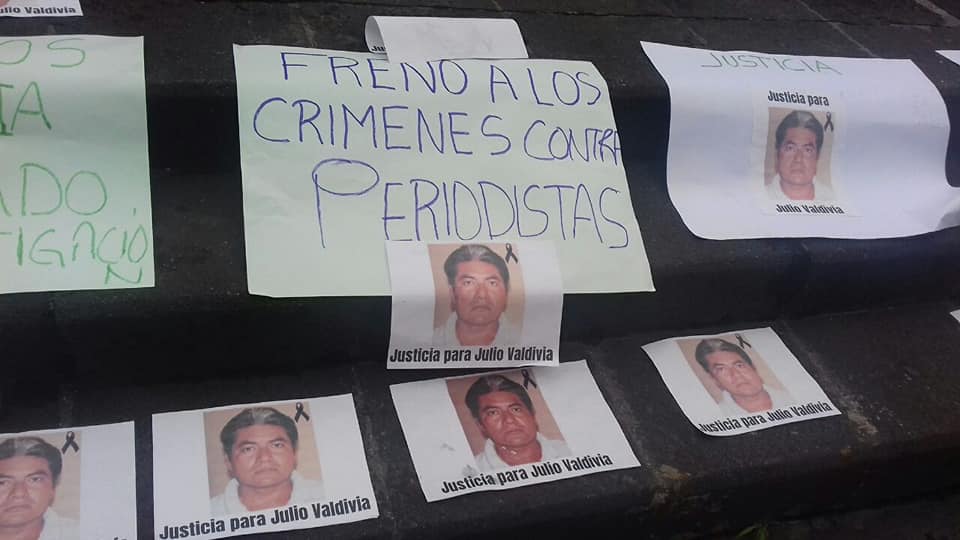 Julio Valdivia
FRENO A LOS
CRIMENES CONTRA
PERIODISTAS
JUSTICIA
Justicia para
Julio Valdivia
Justicia para Julio Valdivia
Justicia para Julio Valdivia
Justicia para Julio Valdivia
Justicia para Julio Valdivia